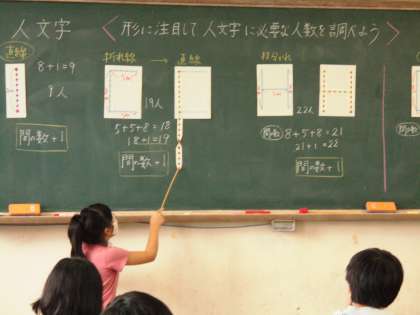 人文字
〈形に注目して人文字に必要な人数を調べよう〉
直線
8+1=9
9人
間の数+1
折れ線 → 直線
19人
5+5+8=18
18+1=19
間の数+1
22人
8+5+8=21
21+1=22
間の数+1